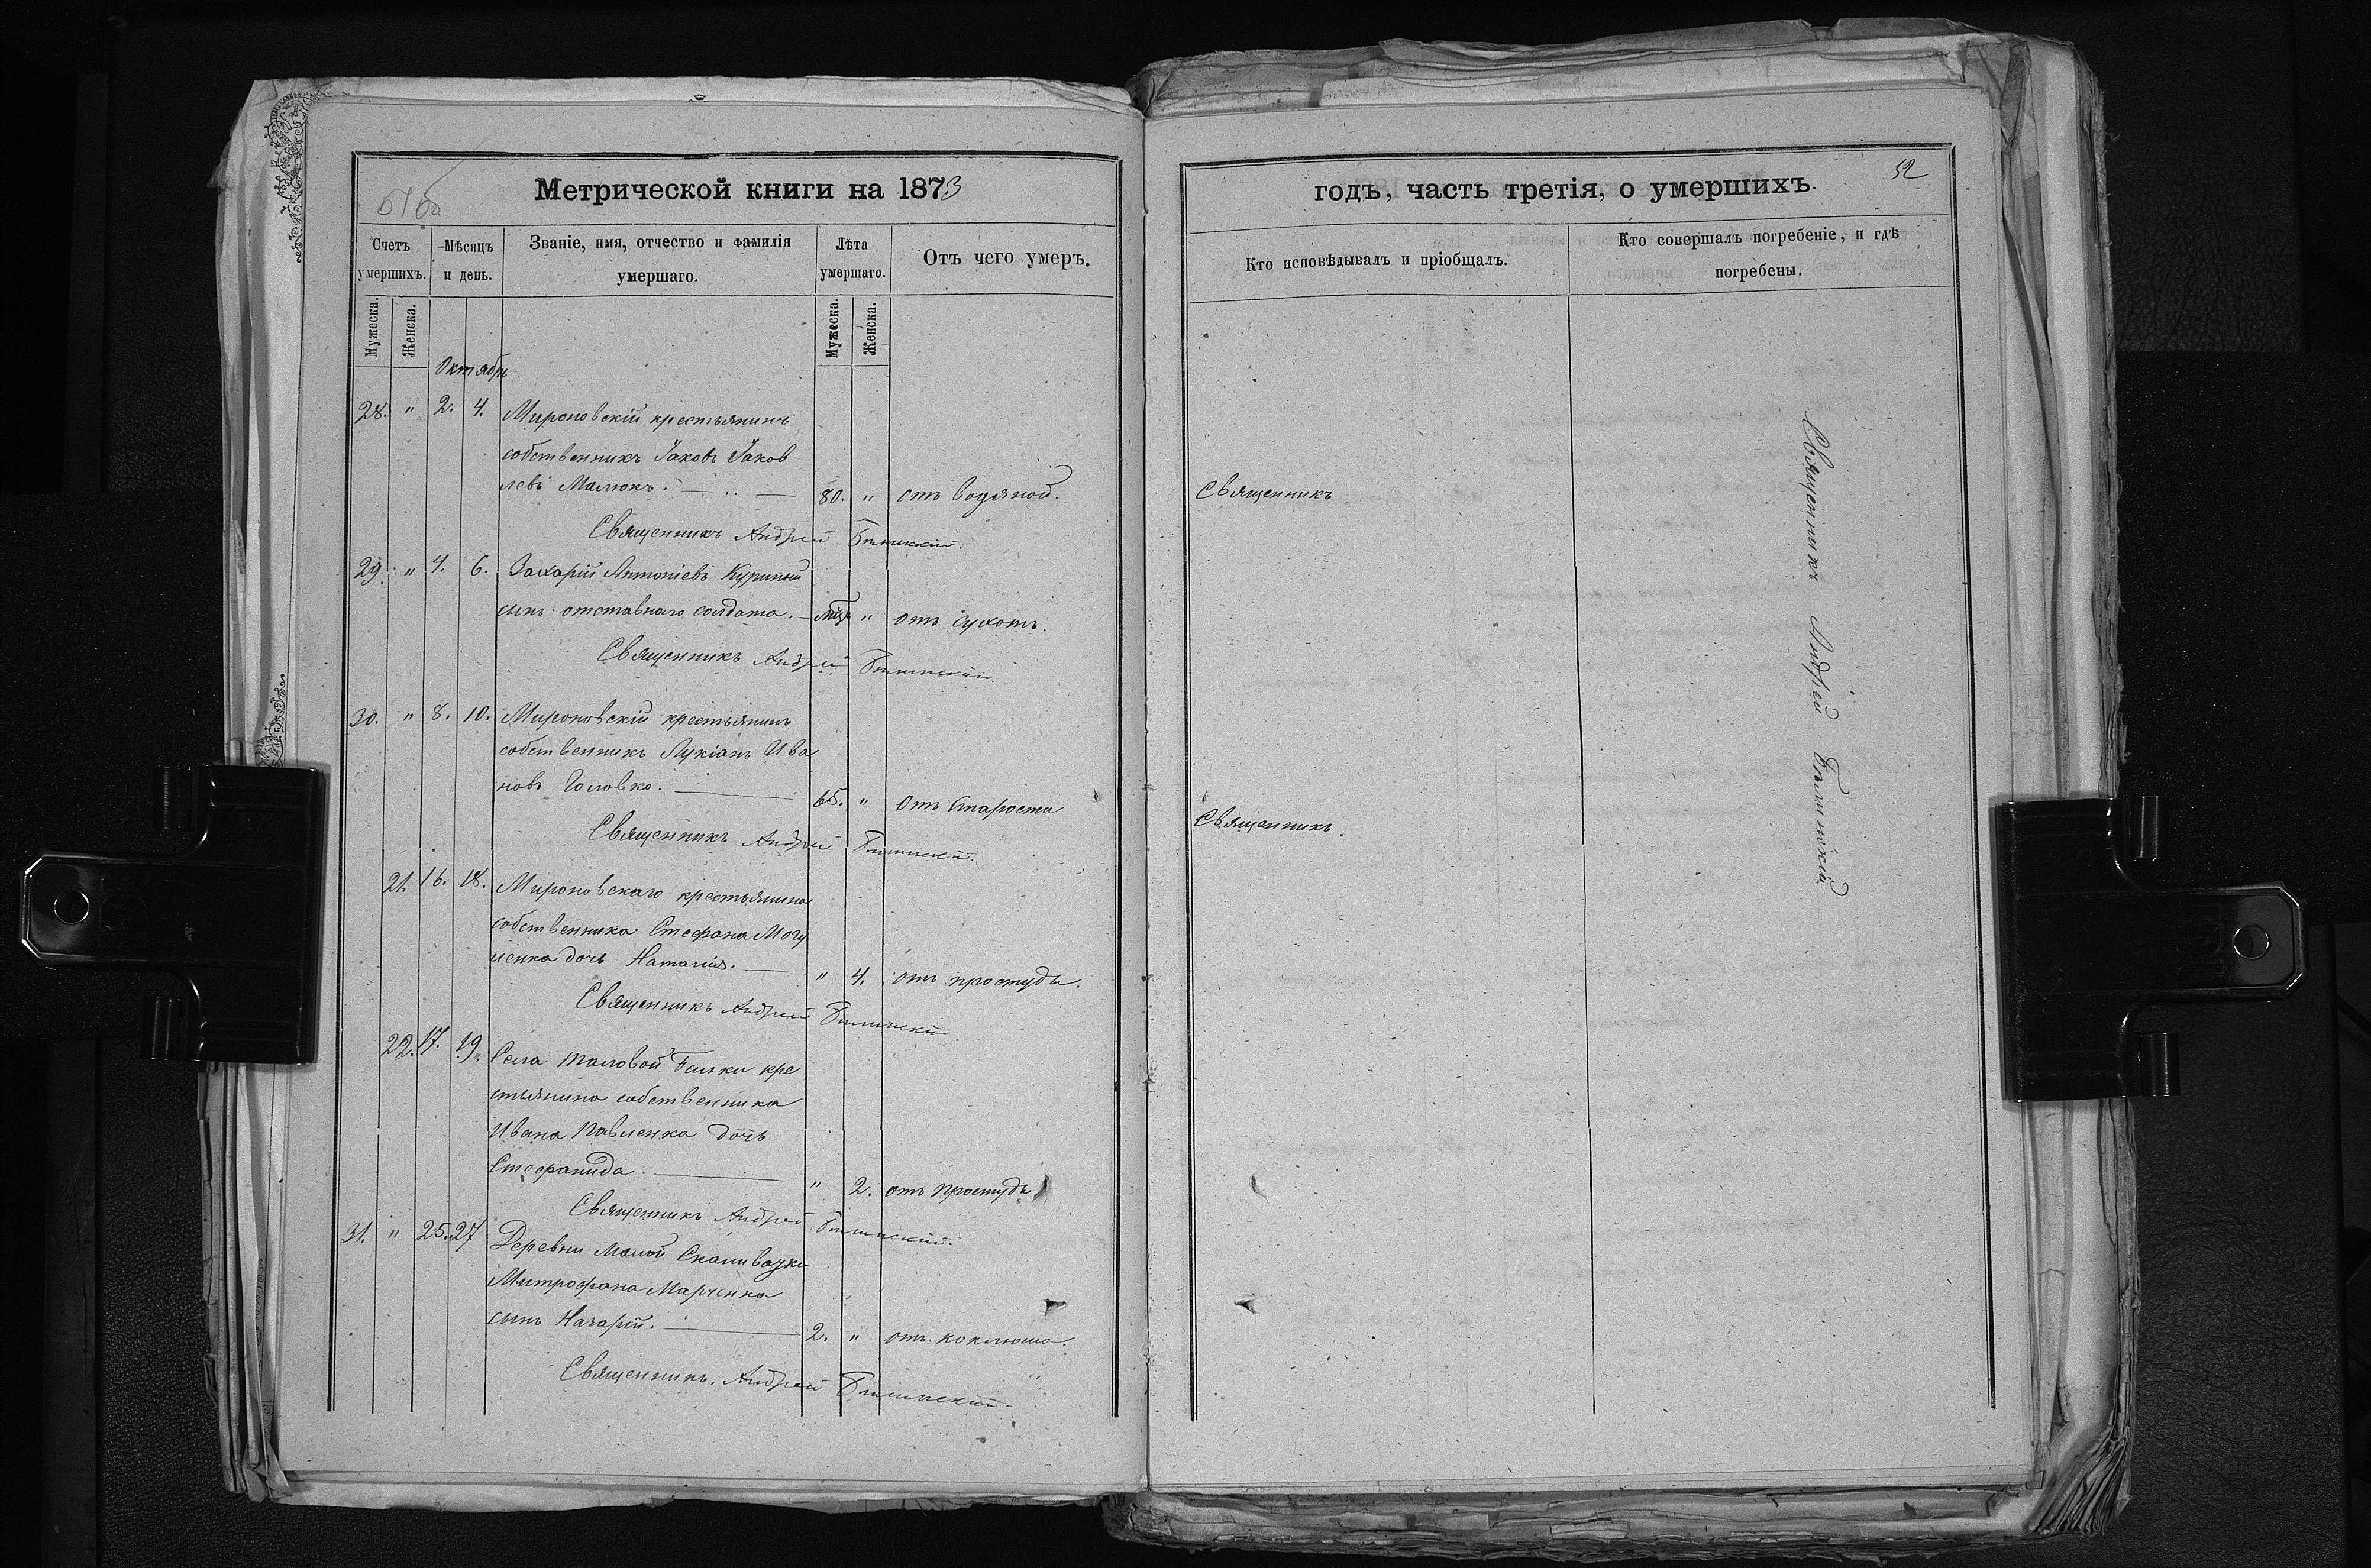 Метрической книги на 1873
Счетъ умершихъ.
Мѣсяцъ и день.
Званіе, имя, отчество и фамилія умершаго.
Лѣта умершаго.
Отъ чего умеръ.
Мужеска.
Женска.
Мужеска.
Женска.
Октябрь
28. " 2. 4. Мироновскій крестьянинъ
собственникъ Іаковъ Іаков
левъ Малюкъ. 80. " отъ водяной.
Священникъ Андрей
29. " 4. 6. Захарій Антоніевъ Куриный
сынъ отставнаго солдата. " отъ сухотъ.
Священникъ Андрей
30. " 8. 10. Мироновскій крестьянинъ
собственникъ Лукіанъ Ива
новъ Головко. 65. " отъ старости
Священникъ Андрей
21. 16. 18. Мироновскаго крестьянина
собственника Стефана
дочь Наталія. " 4. отъ простуды.
Священникъ Андрей
22. 17. 19. Села Таловой Балки кре
стьянина собственника
Ивана Павленка дочь
Стефанида. " 2. отъ простуды
Священникъ Андрей
31. " 25. 27 Деревни Малой
Митрофана Марченка
сынъ Назарій. 2. " отъ коклюша.
Священникъ Андрей
годъ, часть третія, о умершихъ.
52
Кто исповѣдывалъ и пріобщалъ.
Кто совершалъ погребеніе, и гдѣ погребены.
Священникъ
Священникъ.
Священникъ Андрей